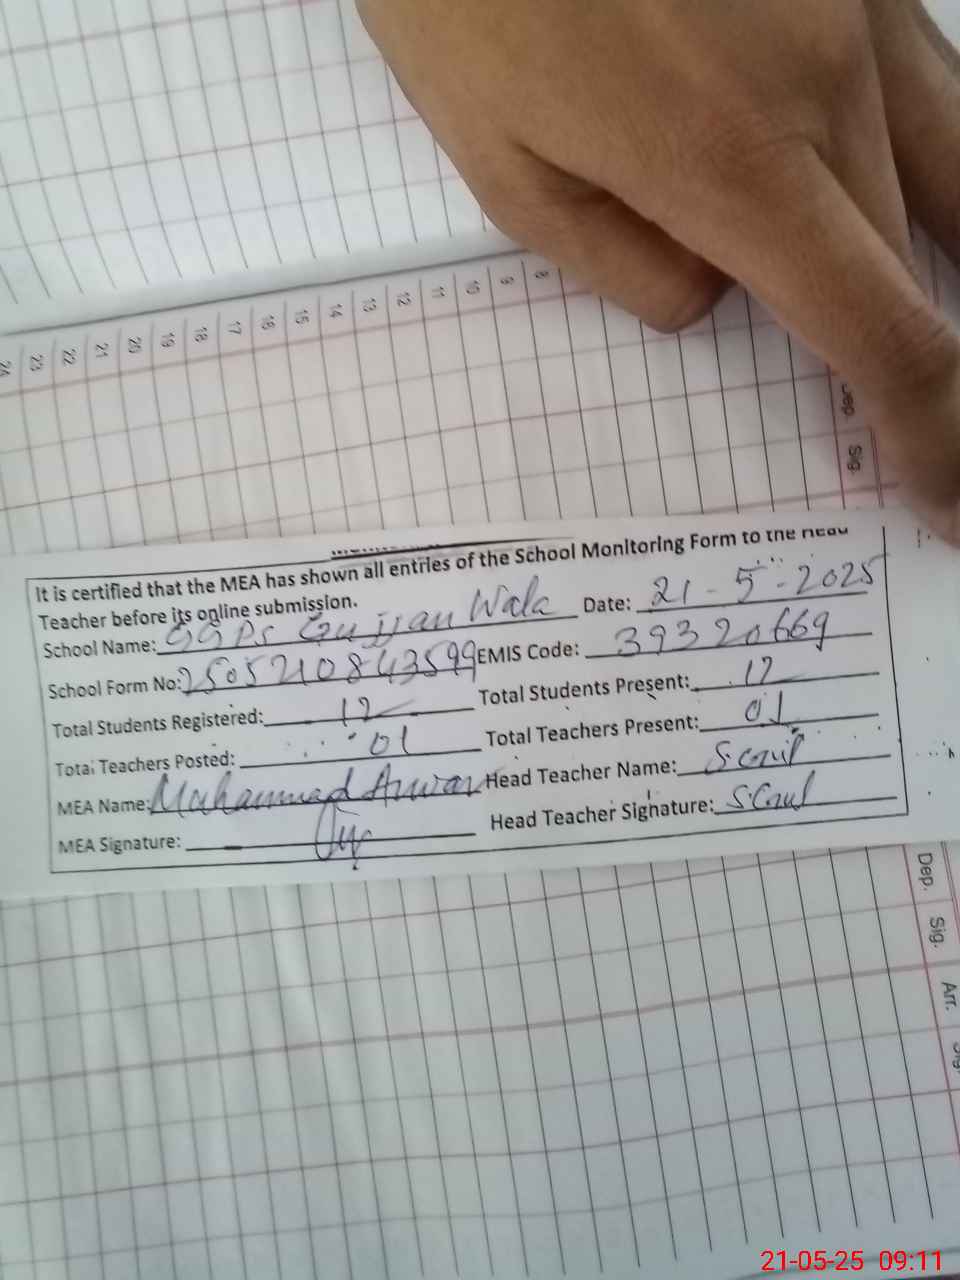 24 23 22 21 20 19 18 17 16 15 14 13 12 11 10 9 8
Dep. Sig
It is certified that the MEA has shown all entries of the School Monitoring Form to the Head
Teacher before its online submission.
School Name: GGPS Gujjan Wala Date: 21-5-2025
School Form No: 2505210843599 EMIS Code: 39320669
Total Students Registered: 12 Total Students Present: 12
Total Teachers Posted: 01 Total Teachers Present: 01
MEA Name: Mahammad Anwar Head Teacher Name:
MEA Signature: Head Teacher Signature:
Dep. Sig. Arr. Sig.
21-05-25 09:11